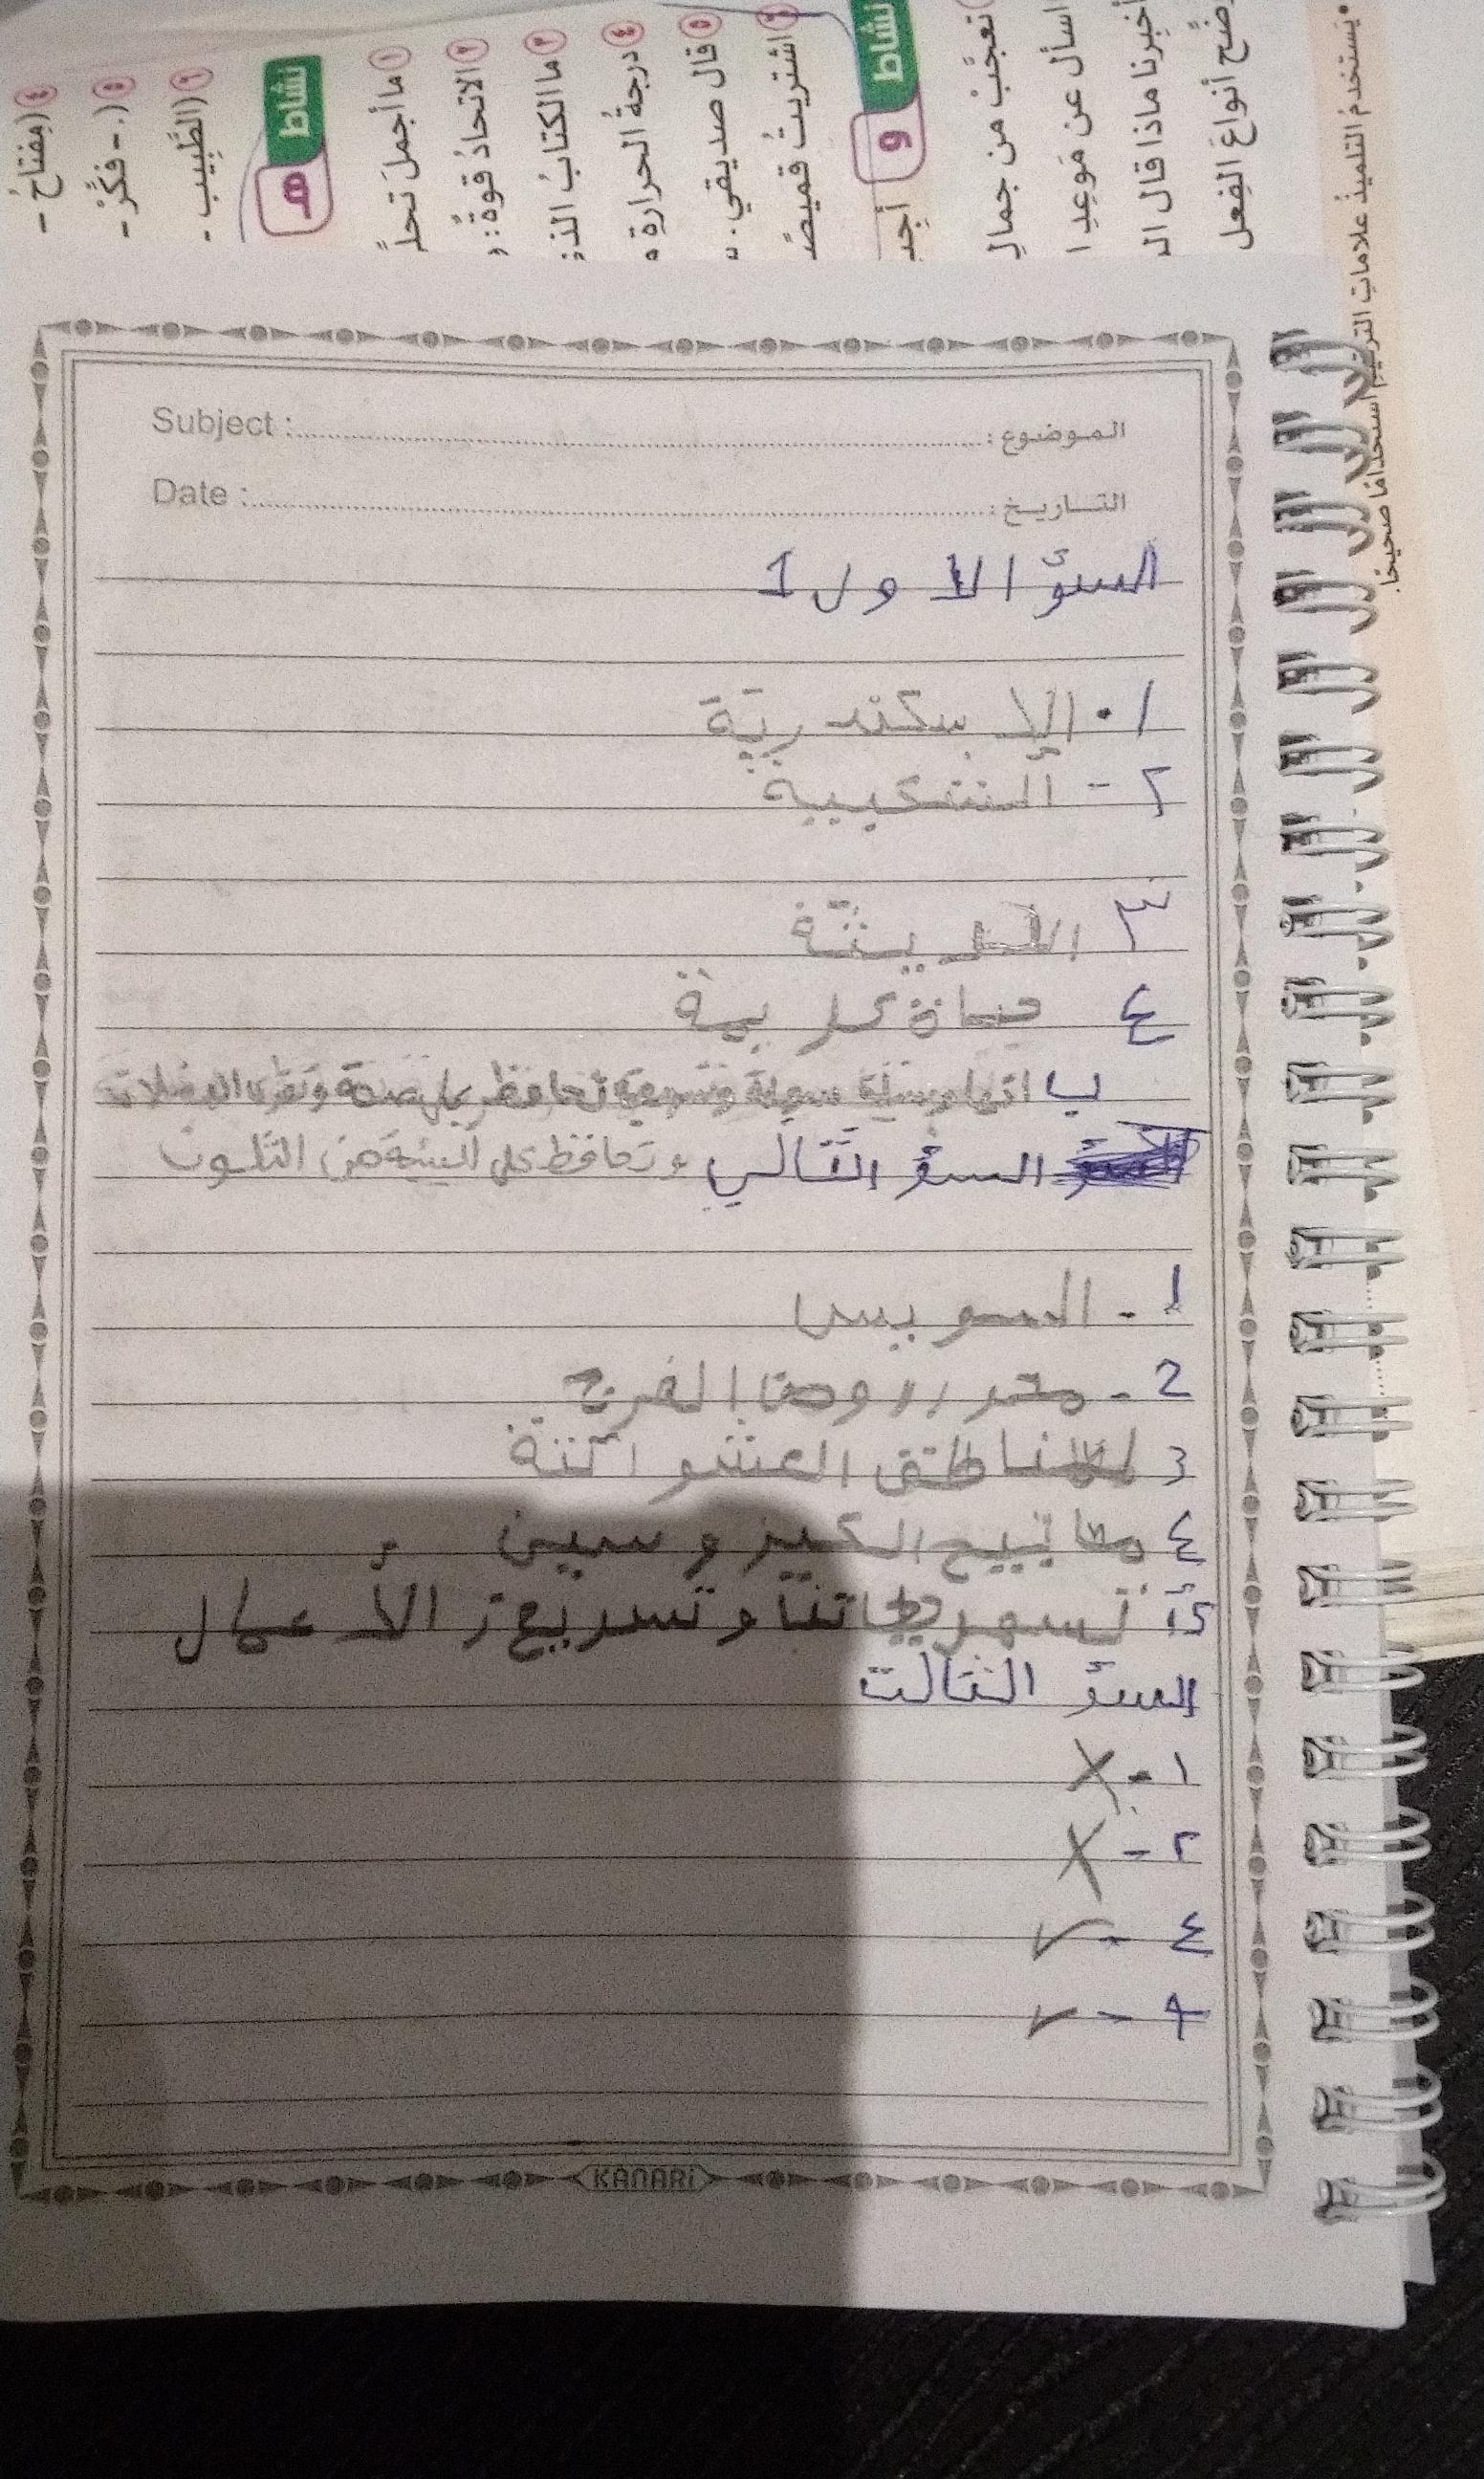 ٤ (مِفتاحُ -
٥ (. - فكَّرْ -
٦ (الطَّبِيب -
هـ نشاط
١ ما أجملَ تحدَّ
٢ الاتحادُ قوةٌ: (
٣ ما الكتابُ الذ
٤ درجةُ الحرارةِ
٥ قال صديقي: "
٦ اشتريتُ قميصً
و نشاط
أجِد
تعجَّبْ من جمالِ
اسأل عن مَوعِدِ ا
أخبِرنا ماذا قال الـ
ضِّح أنواعَ الفِعل
• يَستخدمُ التلميذُ علاماتِ الترقيمِ استخدامًا صحيحًا.
Subject : الموضوع :
Date : التاريخ :
السؤ الاول 1
١٠ الاسكندريّة
٢ - الشكيبية
٣
٤ حياة كريمة
ب انها وسيلة سهلة وسريعة تحافظ على صحة
السؤ الثاني وتحافظ على البيئة من التلوث
١ - السويس
2 - محور روض الفرج
3 المناطق العشوائية
٤ مفاتيح الكيزوسين
٥أ تسهل حياتنا وتسريع الأعمال
السؤ الثالت
١ - X
٢ - X
٤ - ✓
4 - ✓
KANARi